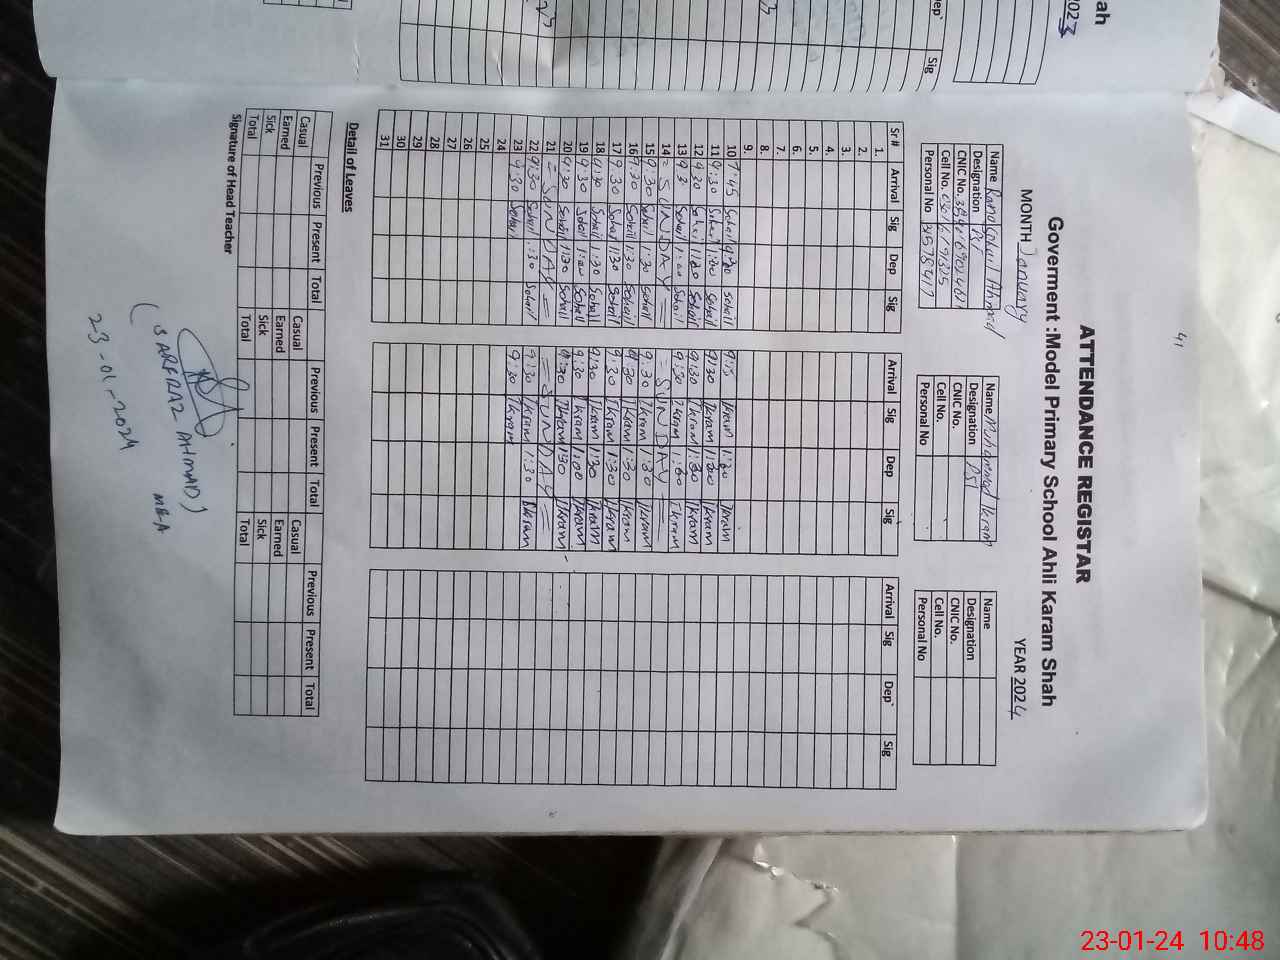 41
ATTENDANCE REGISTAR
Goverment :Model Primary School Ahli Karam Shah
MONTH January YEAR 2024
Name Ahmad Name Muhammad Ikram Name
Designation Designation PST Designation
CNIC No. CNIC No. CNIC No.
Cell No. Cell No. Cell No.
Personal No Personal No Personal No
Sr# Arrival Sig Dep Sig Arrival Sig Dep Sig Arrival Sig Dep` Sig
1.
2.
3.
4.
5.
6.
7.
8.
9.
10 Sohail Sohail Ikram Ikram
11 9:30 Sohail Sohail 9:30 Ikram Ikram
12 9:30 Sohail Sohail 9:30 Ikram 1:30 Ikram
13 Sohail Sohail 9:30 Ikram 1:00 Ikram
14 = SUNDAY = = SUNDAY =
15 9:30 Sohail 1:30 Sohail 9:30 Ikram 1:30 Ikram
16 9:30 Sohail 1:30 Sohail 9:30 Ikram 1:30 Ikram
17 9:30 Sohail 1:30 Sohail 9:30 Ikram 1:30 Ikram
18 9:30 Sohail 1:30 Sohail 9:30 Ikram 1:30 Ikram
19 9:30 Sohail 1:00 Sohail 9:30 Ikram 1:00 Ikram
20 9:30 Sohail 1:30 Sohail 9:30 Ikram 1:30 Ikram
21 = SUNDAY = = SUNDAY =
22 9:30 Sohail 1:30 Sohail 9:30 Ikram 1:30 Ikram
23 9:30 Sohail 9:30 Ikram
24
25
26
27
28
29
30
31
Detail of Leaves
Previous Present Total Previous Present Total Previous Present Total
Casual Casual Casual
Earned Earned Earned
Sick Sick Sick
Total Total Total
Signature of Head Teacher
(SARFRAZ AHMAD)
MEA
23-01-2024
ah
2023
Dep`
Sig
23-01-24 10:48